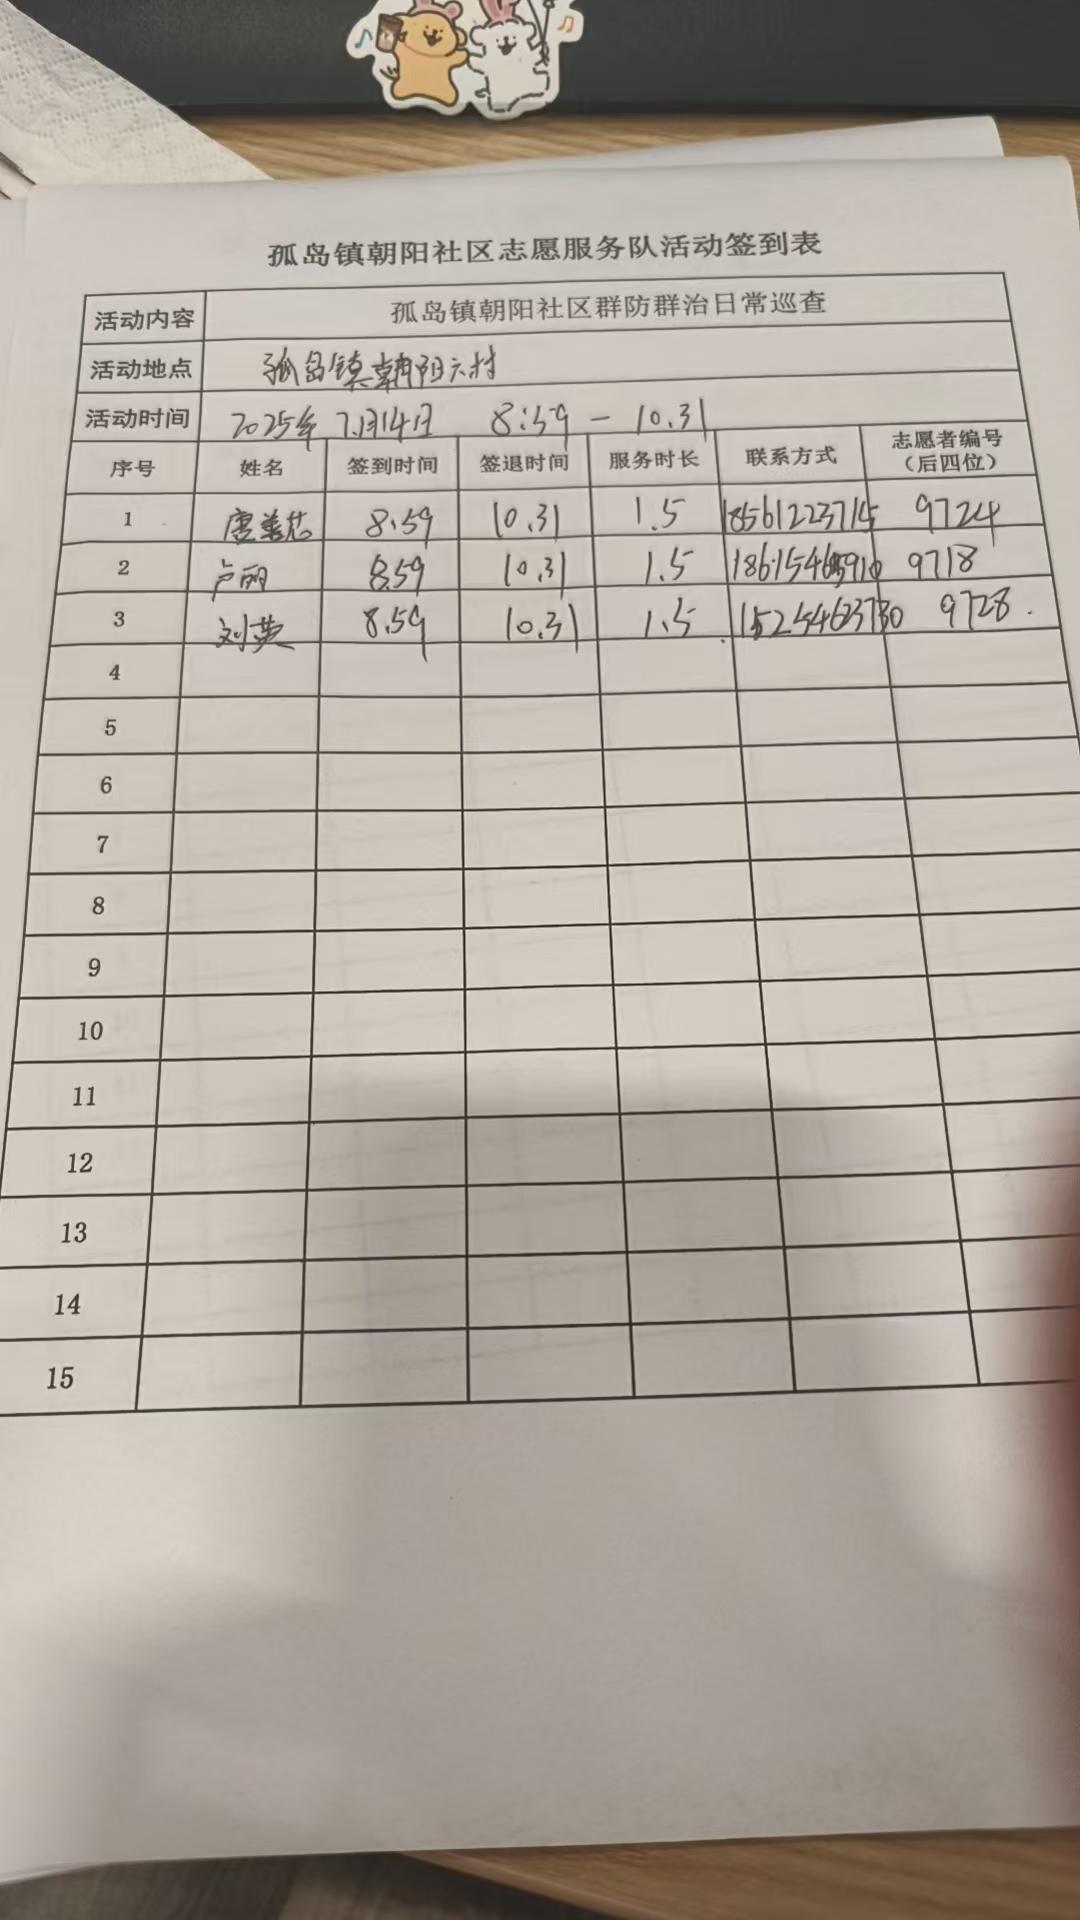 孤岛镇朝阳社区志愿服务队活动签到表
活动内容 孤岛镇朝阳社区群防群治日常巡查
活动地点 孤岛镇朝阳六村
活动时间 2025年 7月14日 8:59 - 10.31
序号 姓名 签到时间 签退时间 服务时长 联系方式 志愿者编号（后四位）
1 唐美芯 8.59 10.31 1.5 18561223715 9724
2 卢丽 8.59 10.31 1.5 9718
3 刘英 8.59 10.31 1.5 15254623730 9728.
4
5
6
7
8
9
10
11
12
13
14
15